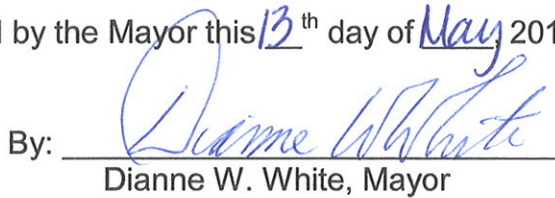 d by the Mayor this 13th day of May, 201
By: Dianne W White
Dianne W. White, Mayor